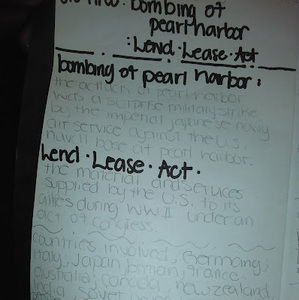 bombing of
pearl harbor
: Lend · Lease · Act
bombing of pearl harbor :
the attack of pearl harbor
was a surprise military strike
by the imperial japanese navy
air service against the U.S.
naval base at pearl harbor.
Lend · Lease · Act ·
the material and services
supplied by the U.S. to its
allies during WW II under an
act of congress.
countries involved, Germany,
Italy, Japan, Britain, France,
Australia, Canada, new zealand
India, Soviet